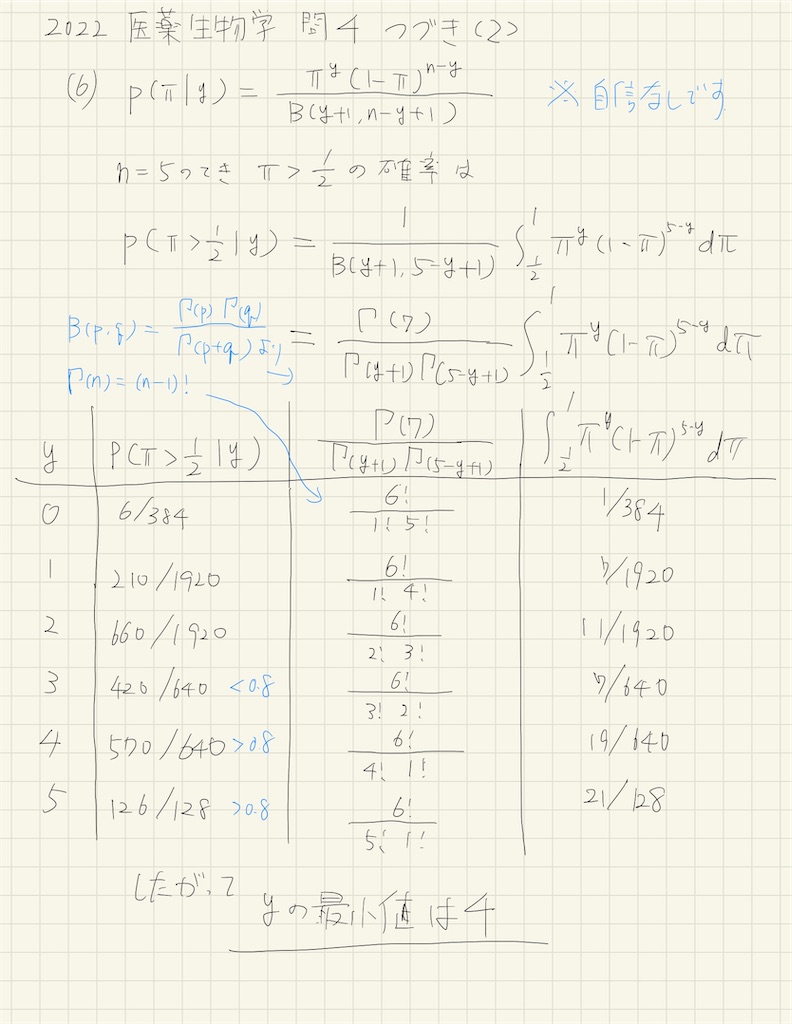 2022 医薬生物学 問4 つづき(2)
(6) p(π|y) = π^y (1-π)^{n-y} / B(y+1, n-y+1) ※ 自信なしです
n=5のとき π > 1/2 の確率は
p(π>1/2|y) = 1 / B(y+1, 5-y+1) ∫_{1/2}^{1} π^y (1-π)^{5-y} dπ
B(p,q) = Γ(p) Γ(q) / Γ(p+q) より = Γ(7) / Γ(y+1) Γ(5-y+1) ∫_{1/2}^{1} π^y (1-π)^{5-y} dπ
Γ(n) = (n-1)!
y P(π>1/2|y) Γ(7) / Γ(y+1) Γ(5-y+1) ∫_{1/2}^{1} π^y (1-π)^{5-y} dπ
0 6/384 6! / 1! 5! 1/384
1 210/1920 6! / 1! 4! 7/1920
2 660/1920 6! / 2! 3! 11/1920
3 420/640 <0.8 6! / 3! 2! 7/640
4 570/640 >0.8 6! / 4! 1! 19/640
5 126/128 >0.8 6! / 5! 1! 21/128
したがって
yの最小値は4